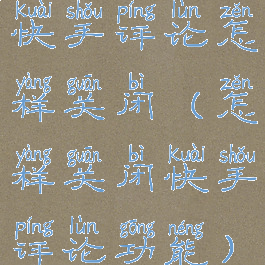 kuài shǒu píng lùn zěn
快手评论怎
yàng guān bì zěn
样关闭(怎
yàng guān bì kuài shǒu
样关闭快手
píng lùn gōng néng
评论功能)